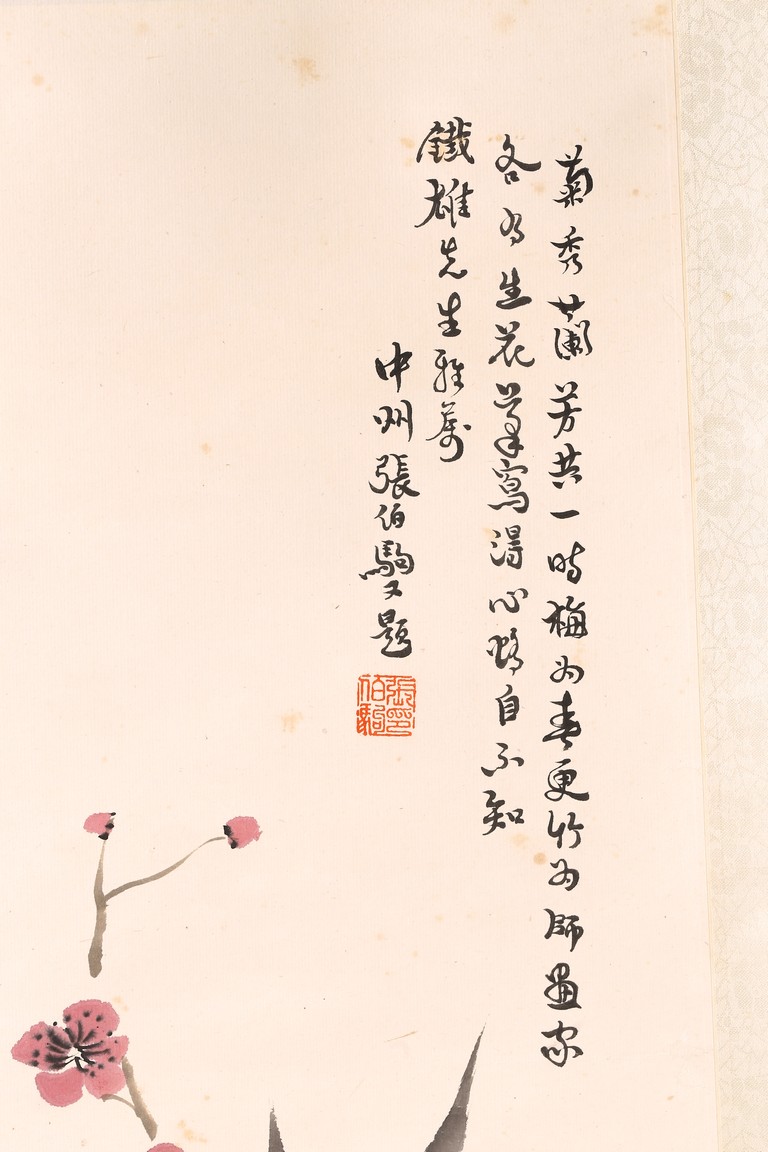 菊秀蘭芳共一時梅为春更竹为師畫家
各有生花筆寫得心自不知
鐵雄先生雅屬
中州張伯駒又題
張印
伯駒